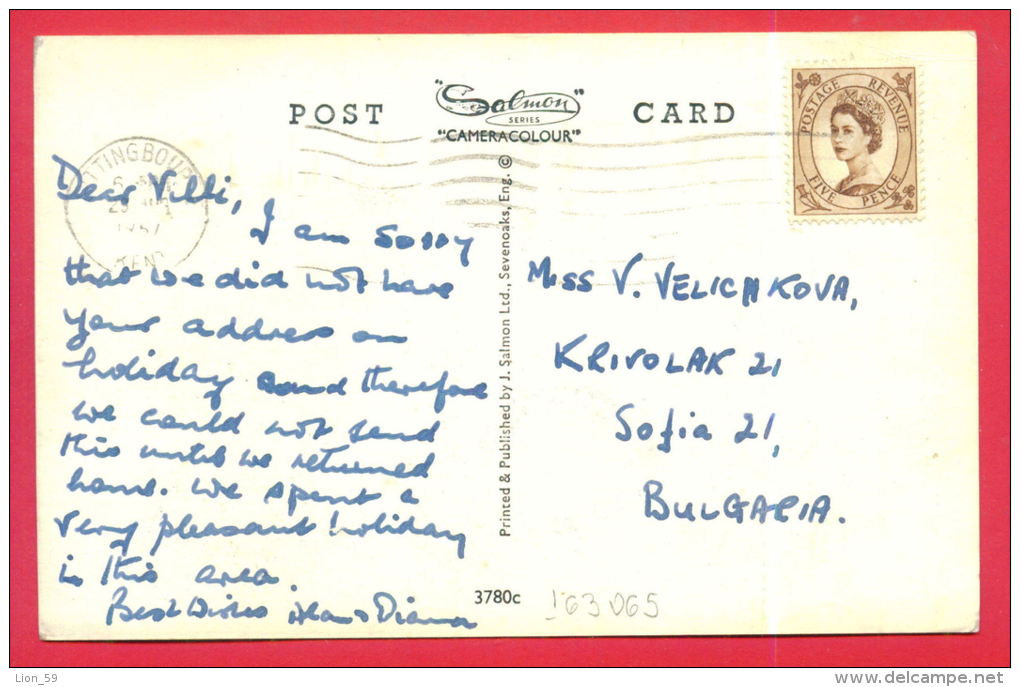 POST "Salmon" CARD
SERIES
"CAMERACOLOUR"
POSTAGE REVENUE
FIVE PENCE
Dear Villi,
I am sorry
that we did not have
your address on
holiday and therefore
we could not send
this until we returned
home. We spent a
very pleasant holiday
in this area.
Best Wishes Diana
Printed & Published by J. Salmon Ltd., Sevenoaks, Eng. ©
Miss V. VELICHKOVA,
KRIVOLAK 21
Sofia 21,
BULGARIA.
3780c
163065
Lion_59
www.delcampe.net